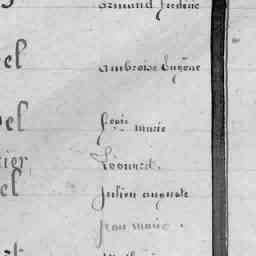 armand frédéric
el
ambroise Eugène
el
marie
tier
Léonard.
el
Julien auguste
jean marie.